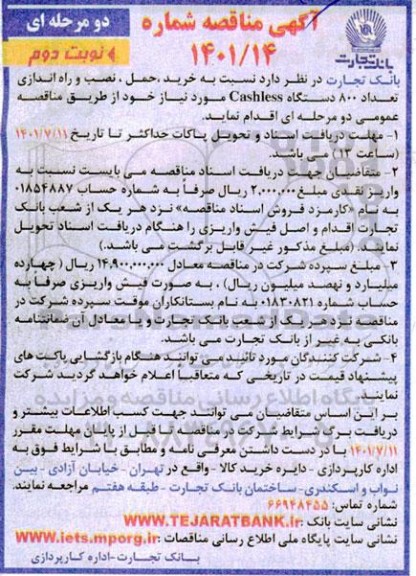 آگهی مناقصه شماره
۱۴۰۱/۱۴
دو مرحله ای
نوبت دوم
بانک تجارت
بانک تجارت در نظر دارد نسبت به خرید ،حمل ، نصب و راه اندازی
تعداد ۸۰۰ دستگاه Cashless مورد نیاز خود از طریق مناقصه
عمومی دو مرحله ای اقدام نماید.
۱- مهلت دریافت اسناد و تحویل پاکات حداکثر تا تاریخ ۱۴۰۱/۷/۱۱
(ساعت ۱۲) می باشد.
۲- متقاضیان جهت دریافت اسناد مناقصه می بایست نسبت به
واریز نقدی مبلغ ۲,۰۰۰,۰۰۰ ریال صرفاً به شماره حساب ۰۱۸۵۴۸۸۷
به نام «کارمزد فروش اسناد مناقصه» نزد هر یک از شعب بانک
تجارت اقدام و اصل فیش واریزی را هنگام دریافت اسناد تحویل
نمایند. (مبلغ مذکور غیر قابل برگشت می باشد.)
۳- مبلغ سپرده شرکت در مناقصه معادل ۱۴,۹۰۰,۰۰۰,۰۰۰ ریال ( چهارده
میلیارد و نهصد میلیون ریال) ، به صورت فیش واریزی صرفاً به
حساب شماره ۰۱۸۳۰۸۲۱ به نام بستانکاران موقت سپرده شرکت در
مناقصه نزد هر یک از شعب بانک تجارت و یا معادل آن ضمانتنامه
بانکی به غیر از بانک تجارت می باشد.
۴- شرکت کنندگان مورد تائید می توانند هنگام بازگشایی پاکت های
پیشنهاد قیمت در تاریخی که متعاقباً اعلام خواهد گردید شرکت
نمایند.
بر این اساس متقاضیان می توانند جهت کسب اطلاعات بیشتر و
دریافت برگ شرایط شرکت در مناقصه، تا قبل از پایان مهلت مقرر
۱۴۰۱/۷/۱۱ با در دست داشتن معرفی نامه و مطابق با شرایط فوق به
اداره کارپردازی - دایره خرید کالا - واقع در تهران - خیابان آزادی - بین
نواب و اسکندری- ساختمان بانک تجارت - طبقه هفتم مراجعه نمایند.
شماره تماس: ۶۶۹۴۸۴۵۵
نشانی سایت بانک: WWW.TEJARATBANK.ir
نشانی سایت پایگاه ملی اطلاع رسانی مناقصات: www.iets.mporg.ir
بانک تجارت-اداره کارپردازی